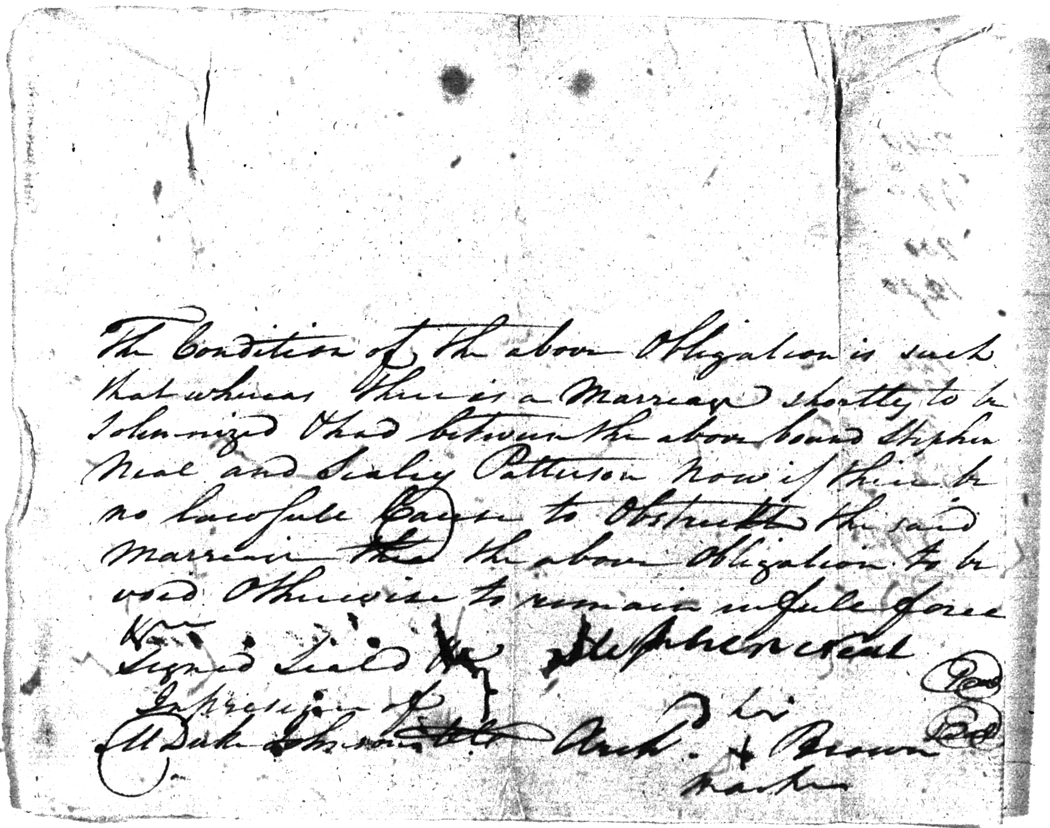 The Condition of the above Obligation is such
that whereas there is a Marreage shortly to be
Solemnized & had between the above bound Stephen
Neal and Sealey Patterson Now if there be
no lawfull Cause to Obstruckt the said
Marreair the the above Obligation to be
void Otherwise to remain in full force
Signed Seald
In presignn of
Johnson Arch. his Brown
mark
Stephen Neal